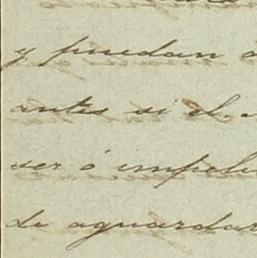 y puedan
antes si el
ser ó impele
de aguardar